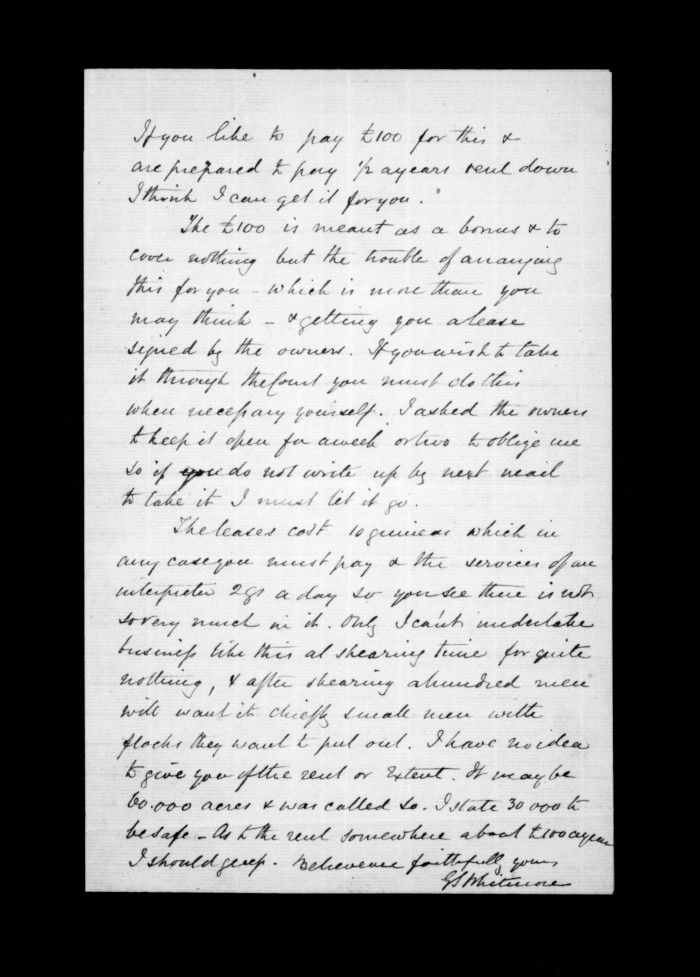 If you like to pay £100 for this &
are prepared to pay 1/2 a years rent down
I think I can get it for you."
The £100 is meant as a bonus & to
cover nothing but the trouble of arranging
this for you - which is more than you
may think - & getting you a lease
signed by the owners. If you wish to take
it through the Court you must do this
when necessary yourself. I asked the owners
to keep it open for a week or two to oblige me
so if you do not write up by next mail
to take it I must let it go.
The leases cost 10 guineas which in
any case you must pay & the services of an
interpreter 2gs a day so you see there is not
so very much in it. Only I can't undertake
business like this at shearing time for quite
nothing, & after shearing a hundred men
will want it chiefly small men with
flocks they want to put out. I have no idea
to give you of the rent or Extent. It may be
60.000 acres & was called so. I state 30 000 to
be safe - As to the rent somewhere about £100 a year
I should guess. Believe me faithfully yours
GS Whitmore